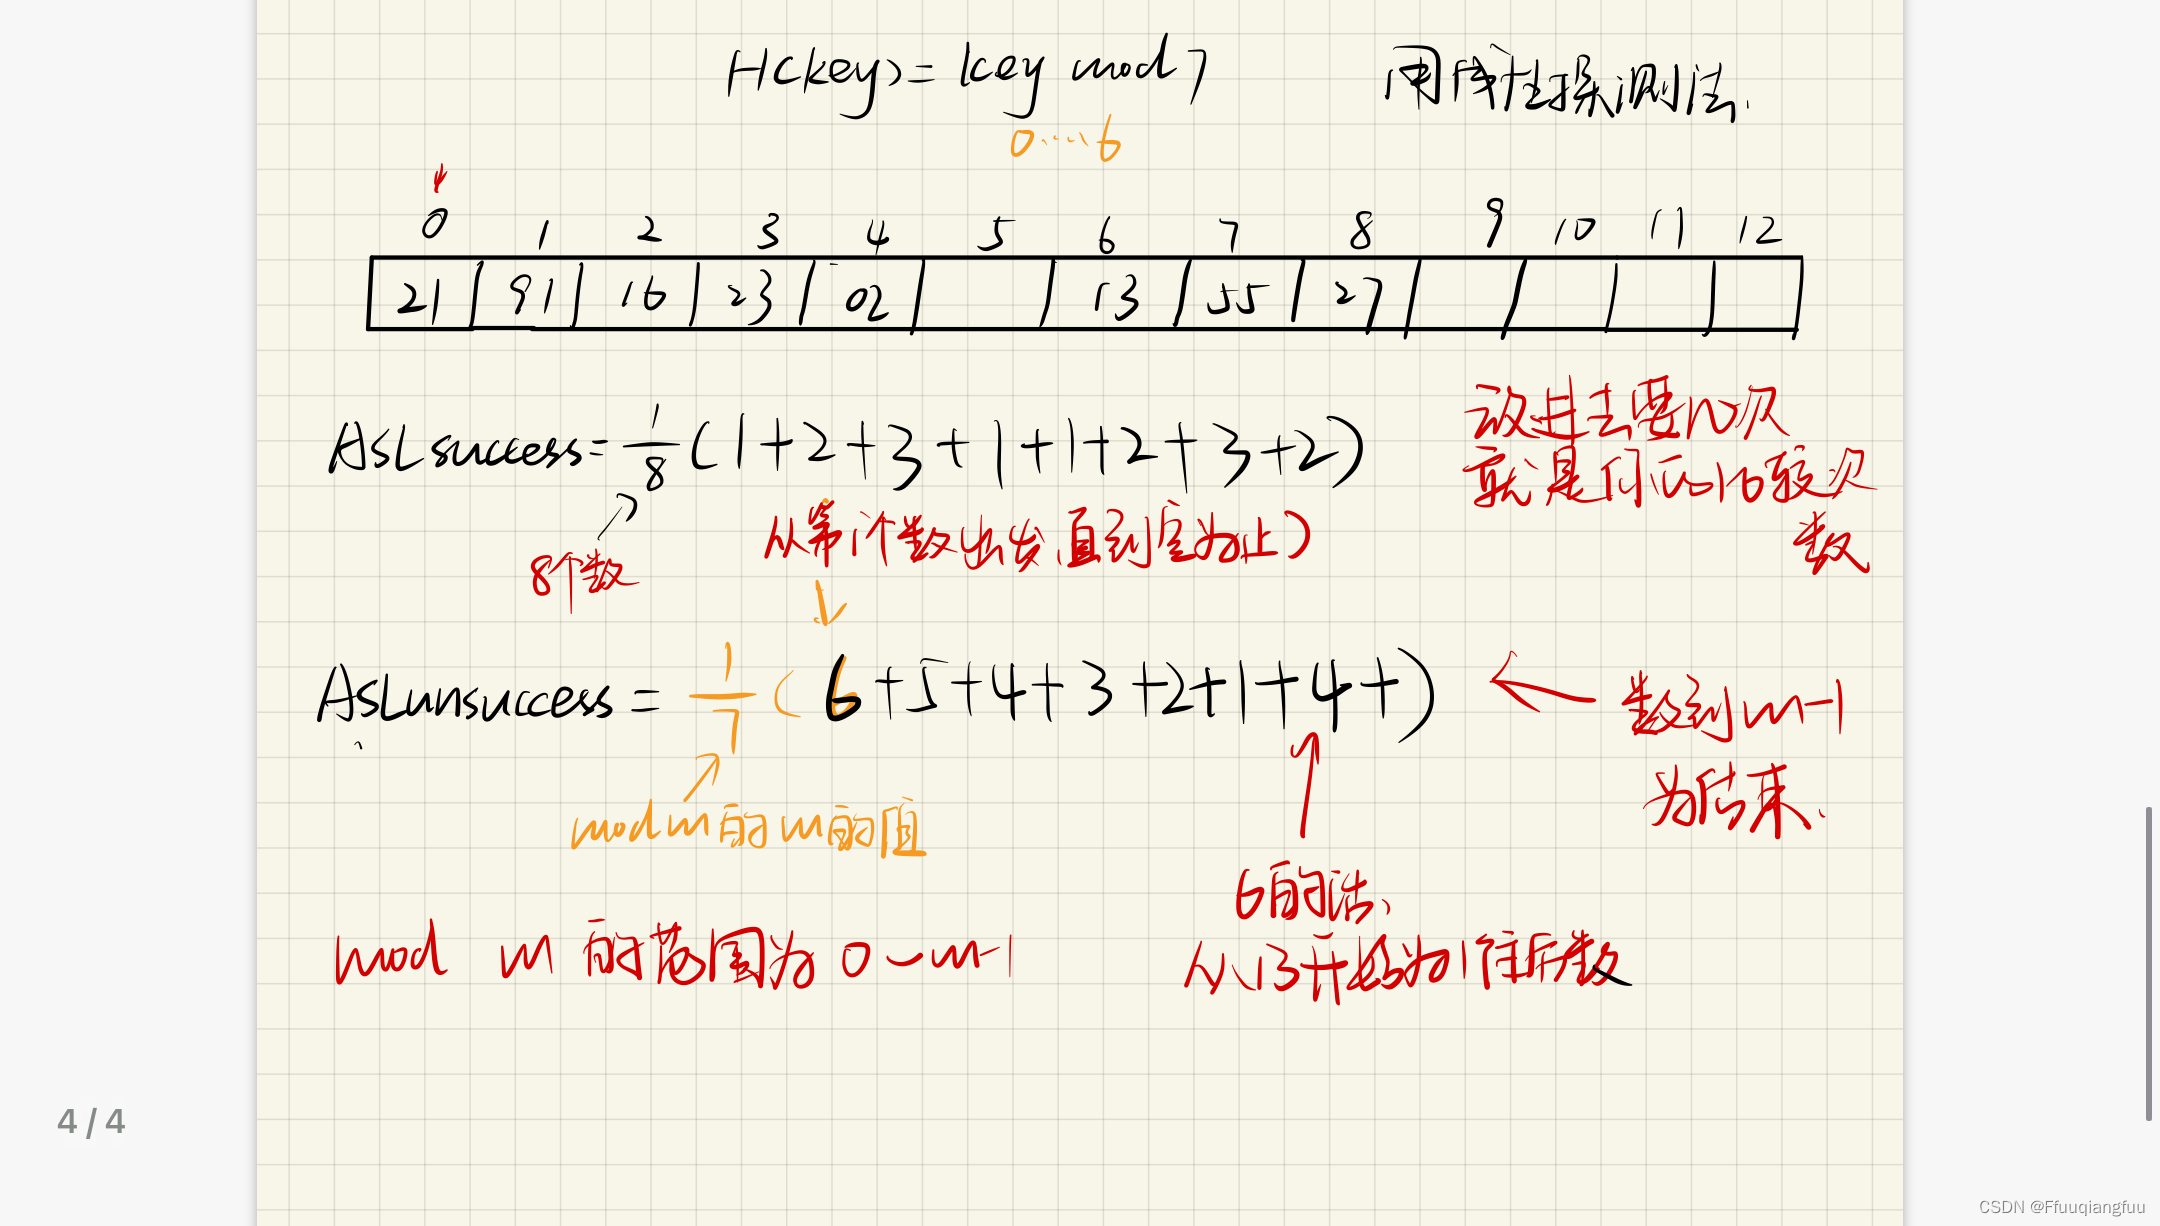 H(key)= key mod 7 用线性探测法.
0……6
0 1 2 3 4 5 6 7 8 9 10 11 12
21 91 16 23 02 13 55 27
ASLsuccess=1/8(1+2+3+1+1+2+3+2)
放进去要n次
就是何元的比较次
数
8个数
从第1个数出发直到空为止)
ASLunsuccess = 1/7(6+5+4+3+2+1+4+)
数到m-1
为结束.
mod m的m的值
6的话、
从13开始为1往后数
mod m 的范围为 0~m-1
4 / 4
CSDN @Ffuuqiangfuu